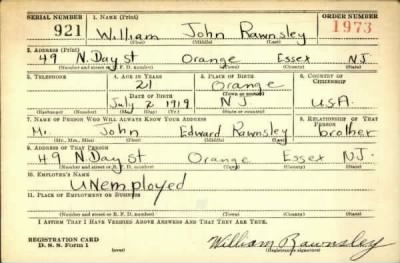 SERIAL NUMBER 1. NAME (Print) ORDER NUMBER
921 William John Rawnsley 1973
(First) (Middle) (Last)
2. ADDRESS (Print)
49 N. Day St Orange Essex N.J.
(Number and street or R. F. D. number) (Town) (County) (State)
3. TELEPHONE 4. AGE IN YEARS 5. PLACE OF BIRTH 6. COUNTRY OF CITIZENSHIP
21 Orange
DATE OF BIRTH (Town or county)
July 2 1919 N J U.S.A.
(Exchange) (Number) (Mo.) (Day) (Yr.) (State or country)
7. NAME OF PERSON WHO WILL ALWAYS KNOW YOUR ADDRESS 8. RELATIONSHIP OF THAT PERSON
Mr. John Edward Rawnsley brother
(Mr., Mrs., Miss) (First) (Middle) (Last)
9. ADDRESS OF THAT PERSON
49 N. Day St Orange Essex N.J.
(Number and street or R. F. D. number) (Town) (County) (State)
10. EMPLOYER'S NAME
Unemployed
11. PLACE OF EMPLOYMENT OR BUSINESS
(Number and street or R. F. D. number) (Town) (County) (State)
I AFFIRM THAT I HAVE VERIFIED ABOVE ANSWERS AND THAT THEY ARE TRUE.
REGISTRATION CARD William Rawnsley
D. S. S. Form 1 (over) (Registrant's signature)